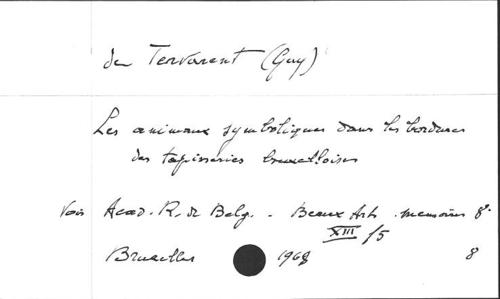 de Tervarent (Guy)
Les animaux symboliques dans les bordures
des tapisseries bruxelloises
Voir Acad. R. de Belg. - Beaux Arts. memoires 8°.
XIII /5
Bruxelles 1968 8